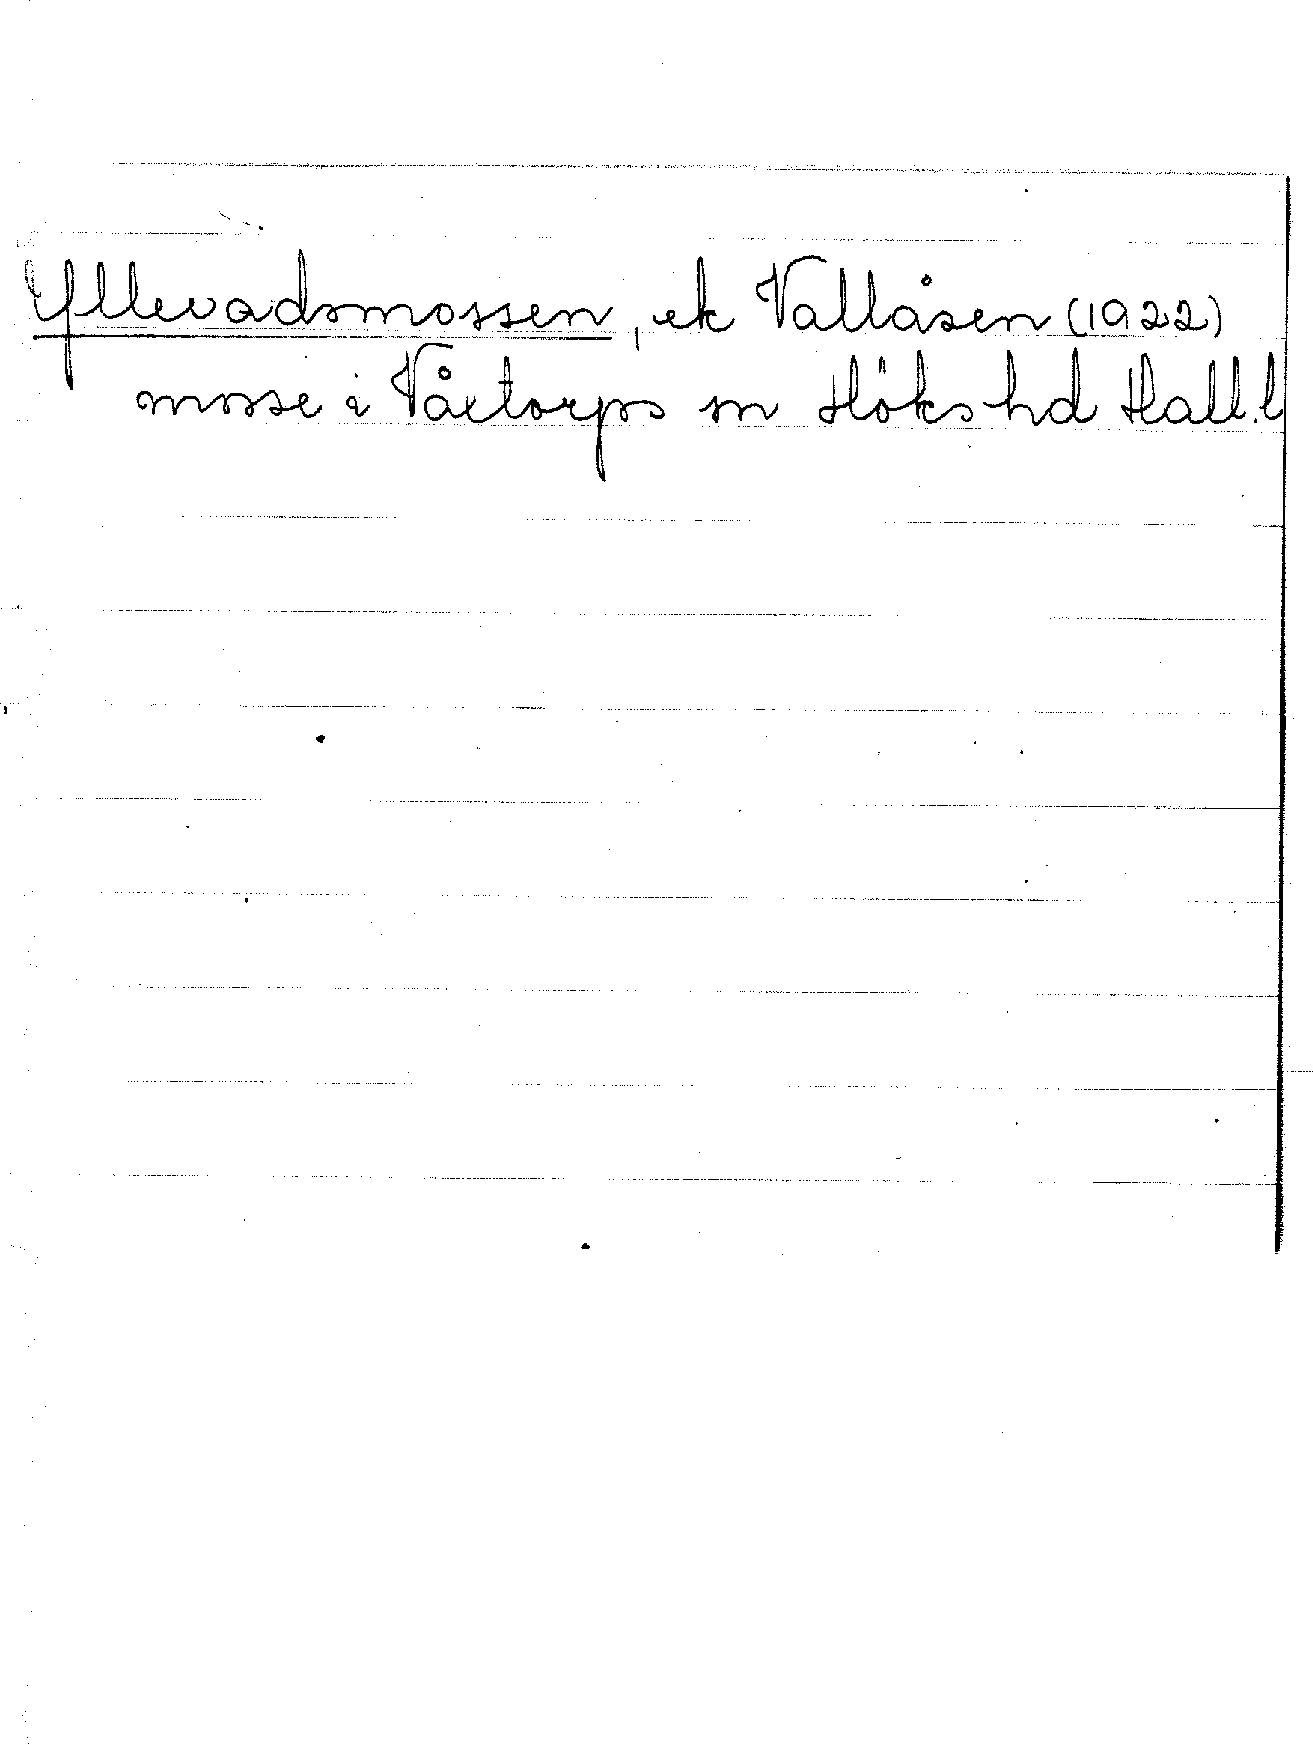 Yllevadsmossen, ek Vallåsen (1922)
mosse i Våxtorps sn Höks hd Hall. l